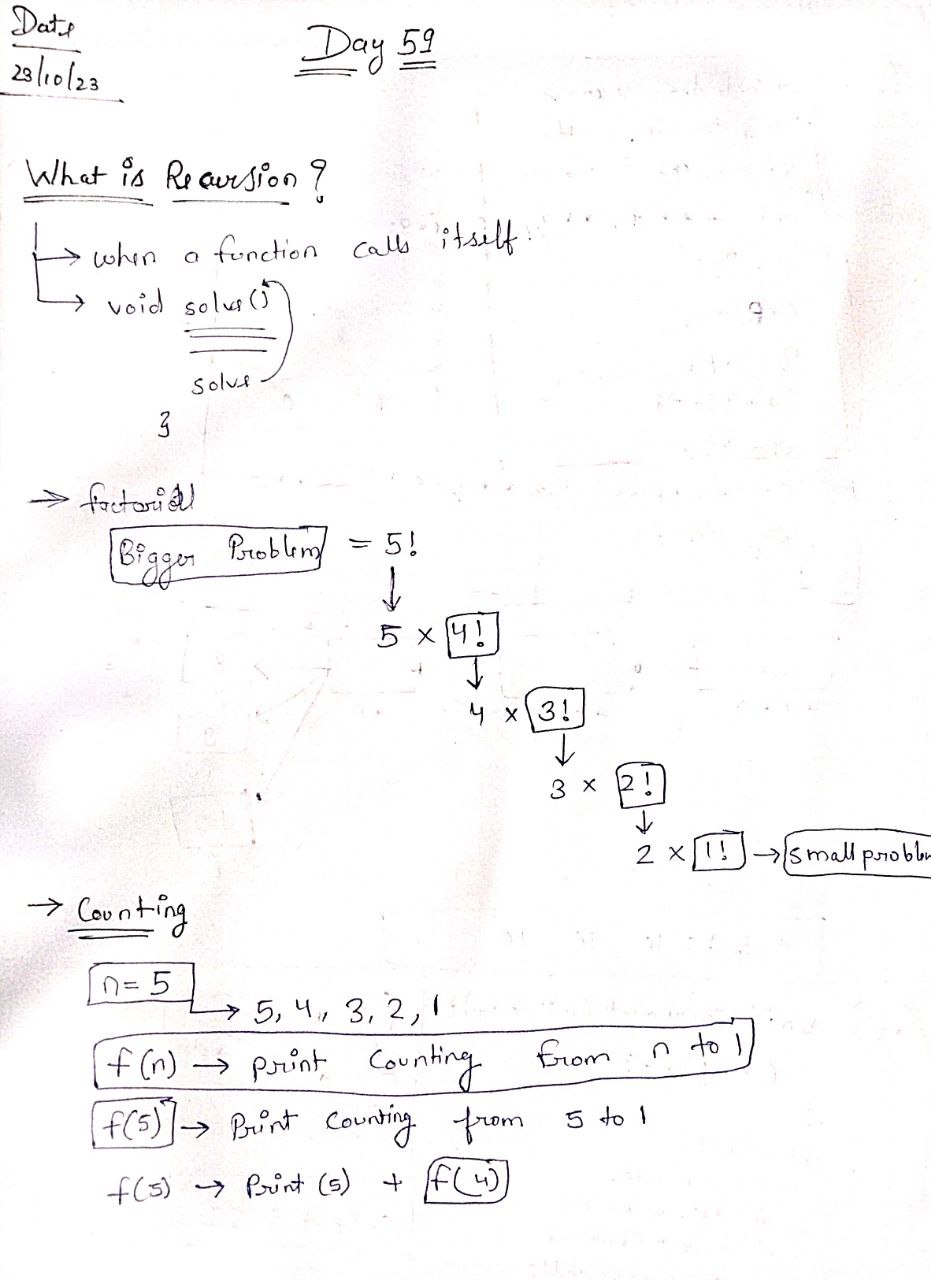 Date
Day 59
23/10/23
What is Recursion?
→ when a function calls itself.
→ void solve()
solve
}
→ factorial
Bigger Problem = 5!
↓
5 × 4!
↓
4 × 3!
↓
3 × 2!
↓
2 × 1! → small problem
→ Counting
n = 5
→ 5, 4, 3, 2, 1
f(n) → print Counting from n to 1
f(5) → Print Counting from 5 to 1
f(5) → Print (5) + f(4)